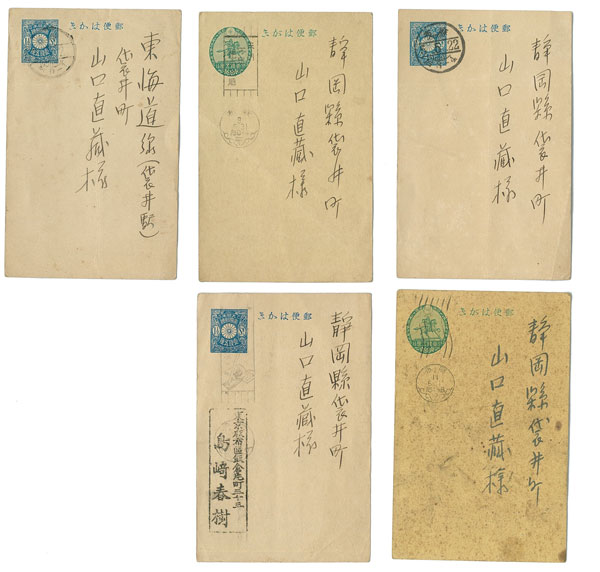 郵便はかき
東海道線(袋井駅)
袋井町
山口直藏様
郵便はかき
静岡縣袋井町
山口直藏様
郵便はかき
22
静岡縣袋井町
山口直藏様
郵便はかき
静岡縣袋井町
山口直藏様
東京麻布區飯倉片町三十三
島崎春樹
郵便はかき
静岡縣袋井町
山口直藏様